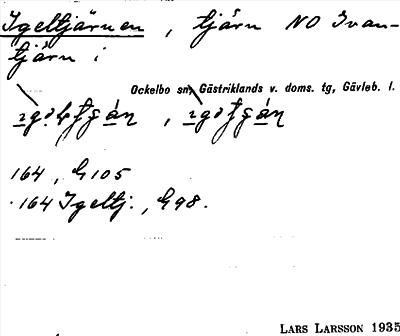 Igeltjärnen, tjärn NO Svan-
tjärn i
Ockelbo sn, Gästriklands v. doms. tg, Gävleb. l.
164, G105
164 Igeltj., G98.
LARS LARSSON 1935